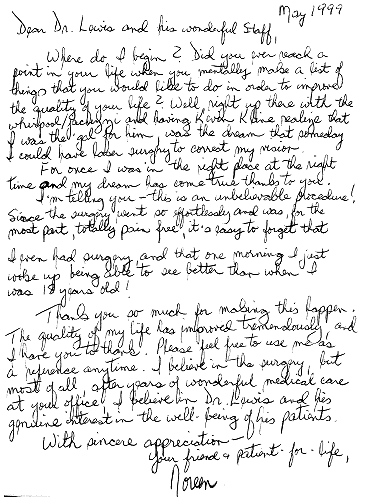 May 1999
Dear Dr. Lewis and his wonderful staff,
Where do I begin? Did you ever reach a
point in your life when you mentally make a list of
things that you would like to do in order to improve
the quality of your life? Well, right up there with the
whirlpool/jacuzzi and having Kevin Kline realize that
I was the "gal" for him, was the dream that someday
I could have laser surgery to correct my vision.
For once I was in the right place at the right
time and my dream has come true thanks to you.
I'm telling you - this is an unbelievable procedure!
Since the surgery went so effortlessly and was, for the
most part, totally pain free, it's easy to forget that
I even had surgery, and that one morning I just
woke up being able to see better than when I
was 18 years old!
Thank you so much for making this happen.
The quality of my life has improved tremendously, and
I have you to thank. Please feel free to use me as
a reference anytime. I believe in the surgery, but
most of all, after years of wonderful medical care
at your office, I believe in Dr. Lewis and his
genuine interest in the well-being of his patients.
With sincere appreciation -
Your friend & patient-for-life,
Noreen